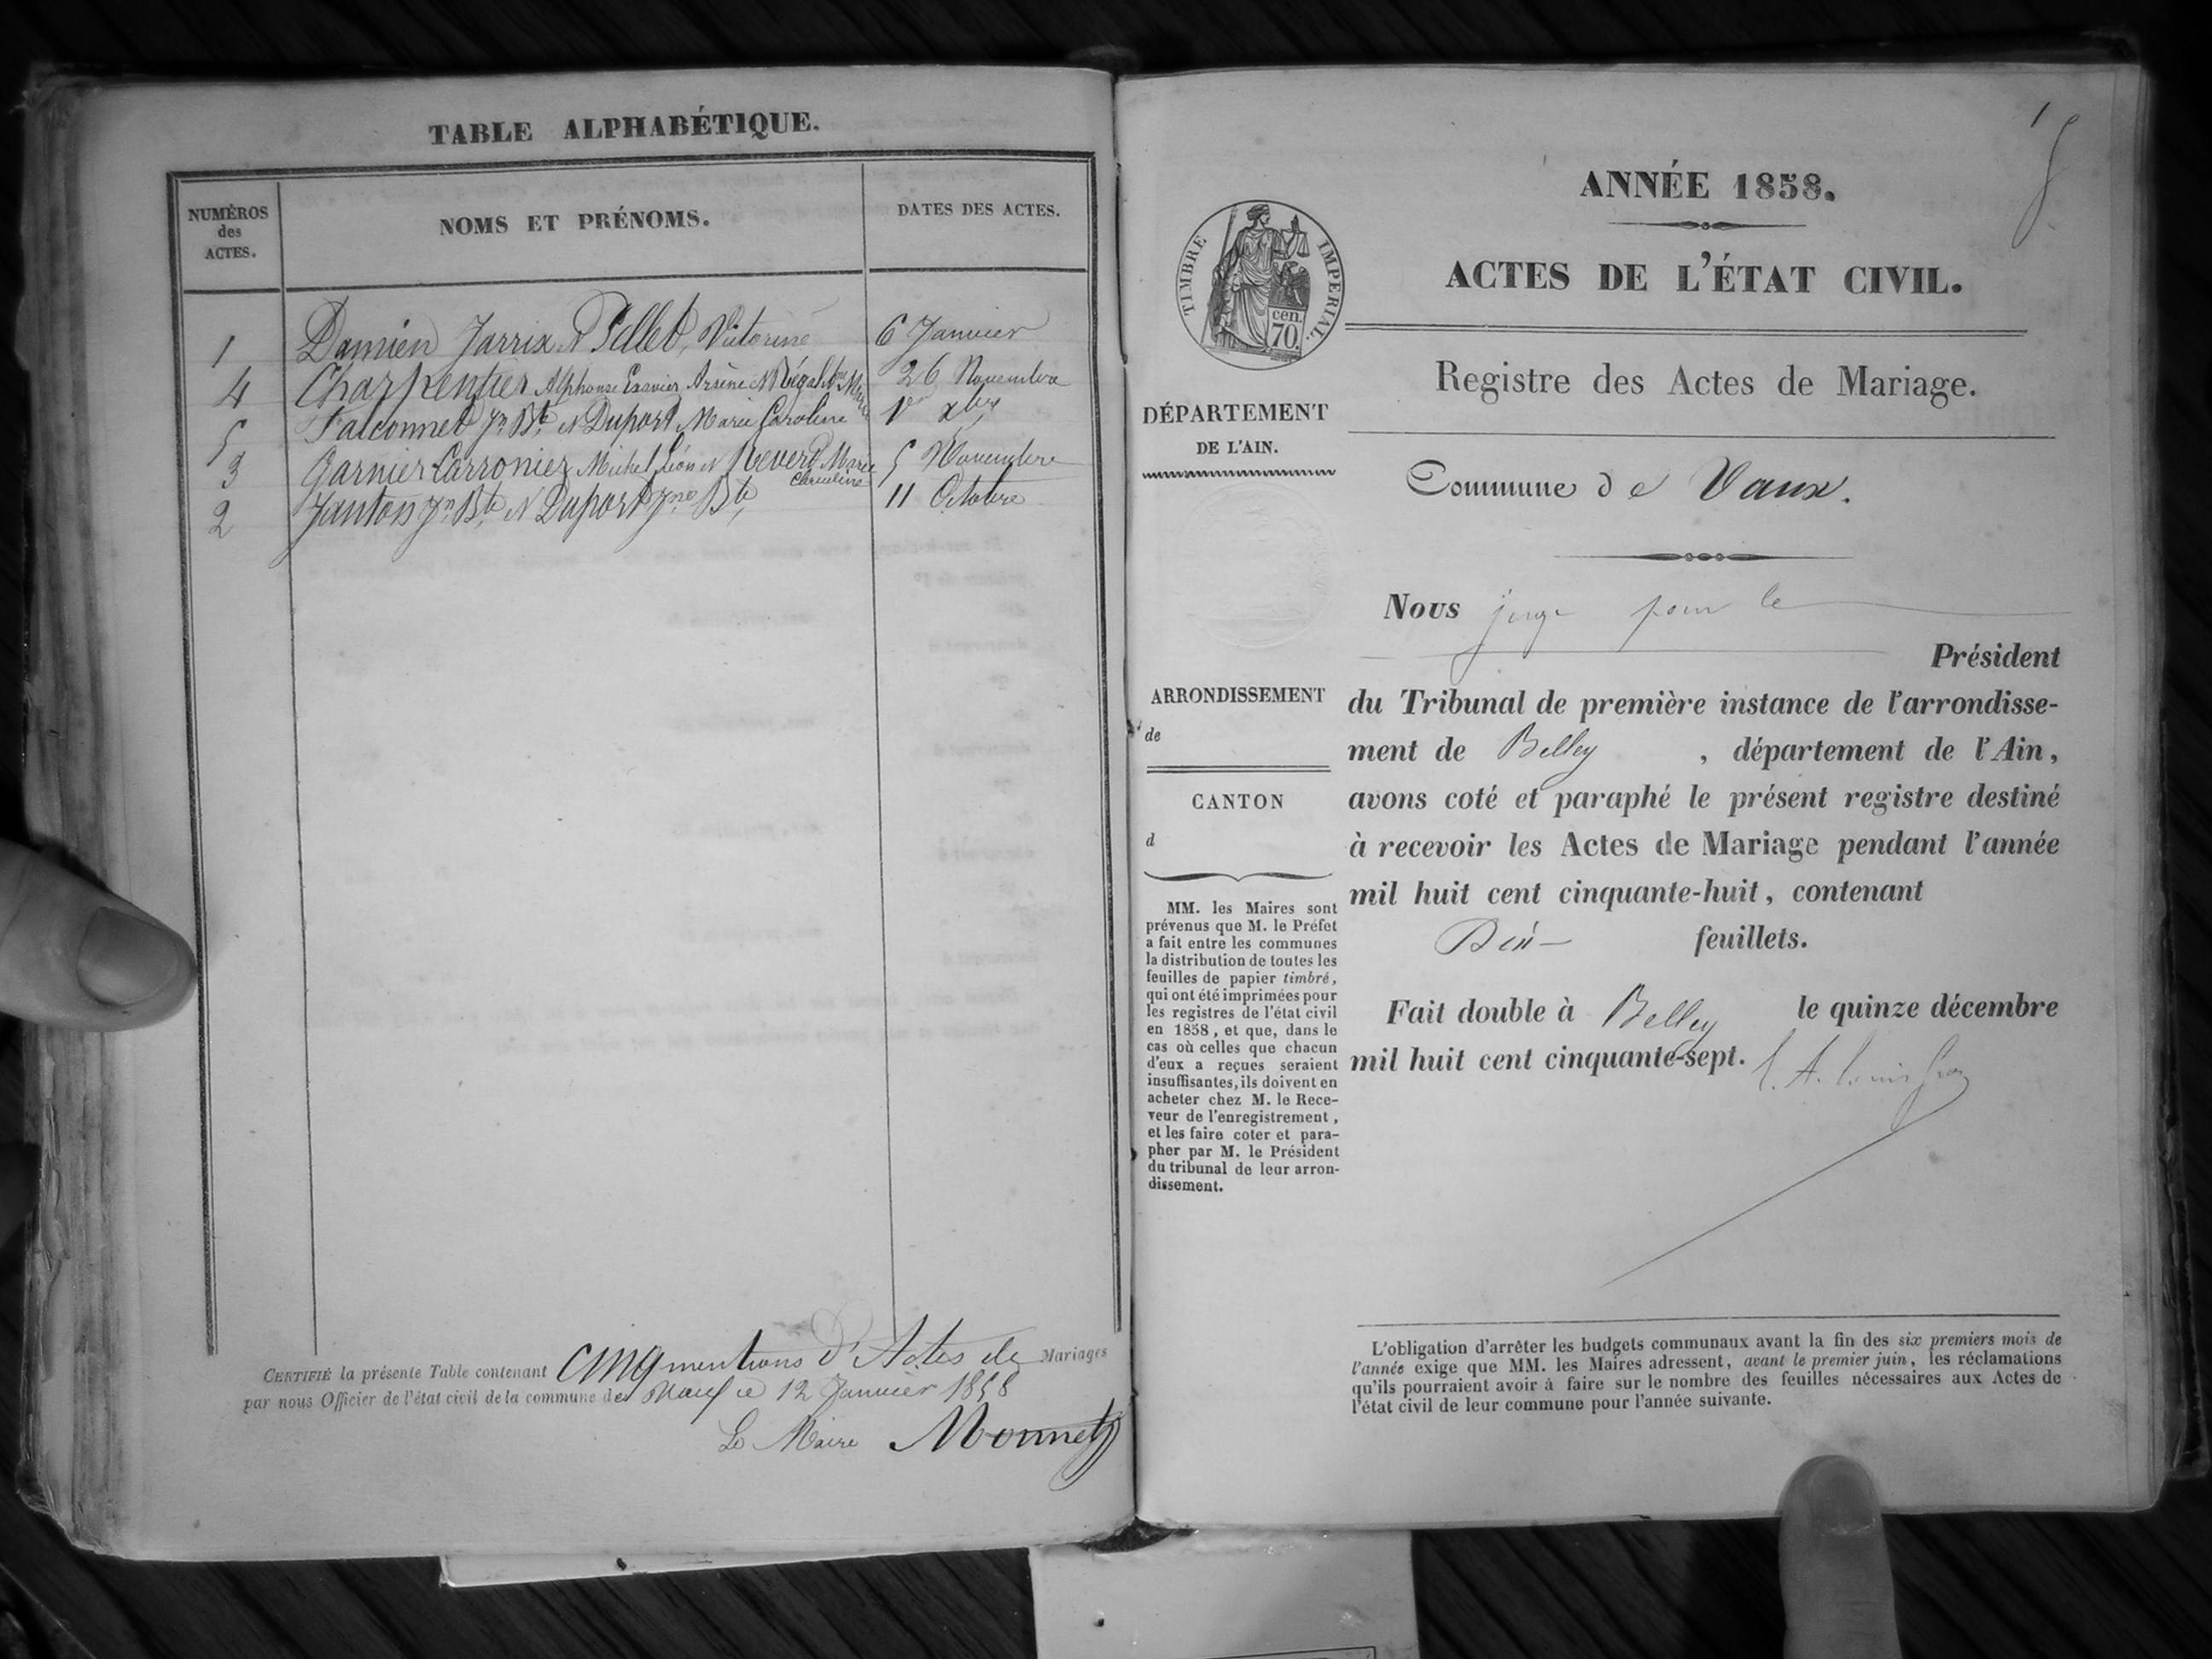 TABLE ALPHABÉTIQUE.
NUMÉROS
des
ACTES.
NOMS ET PRÉNOMS.
DATES DES ACTES.
1 Damien Jarrix & Pellet, Victorine 6 Janvier
4 Charpentier Alphonse Exavier Arsène & Marie 26 Novembre
5 Falconnet Jn Bte & Duport Marie Caroline 1er xbre
3 Garnier Carronier Michel Léon & Revert Marie 5 Novembre
2 Janton Jn Bte & Duport Jne Bte 11 Octobre
CERTIFIÉ la présente Table contenant cinq mentions d'Actes de Mariages
par nous Officier de l'état civil de la commune de Vaux le 12 Janvier 1858
Le Maire Monnet
1
ANNÉE 1858.
ACTES DE L'ÉTAT CIVIL.
Registre des Actes de Mariage.
Commune de Vaux.
TIMBRE IMPÉRIAL.
70.
cen.
DÉPARTEMENT
DE L'AIN.
ARRONDISSEMENT
de
CANTON
d
MM. les Maires sont
prévenus que M. le Préfet
a fait entre les communes
la distribution de toutes les
feuilles de papier timbré,
qui ont été imprimées pour
les registres de l'état civil
en 1858, et que, dans le
cas où celles que chacun
d'eux a reçues seraient
insuffisantes, ils doivent en
acheter chez M. le Rece-
veur de l'enregistrement,
et les faire coter et para-
pher par M. le Président
du tribunal de leur arron-
dissement.
Nous juge pour le
Président
du Tribunal de première instance de l'arrondisse-
ment de Belley, département de l'Ain,
avons coté et paraphé le présent registre destiné
à recevoir les Actes de Mariage pendant l'année
mil huit cent cinquante-huit, contenant
feuillets.
Fait double à Belley le quinze décembre
mil huit cent cinquante-sept.
L'obligation d'arrêter les budgets communaux avant la fin des six premiers mois de
l'année exige que MM. les Maires adressent, avant le premier juin, les réclamations
qu'ils pourraient avoir à faire sur le nombre des feuilles nécessaires aux Actes de
l'état civil de leur commune pour l'année suivante.